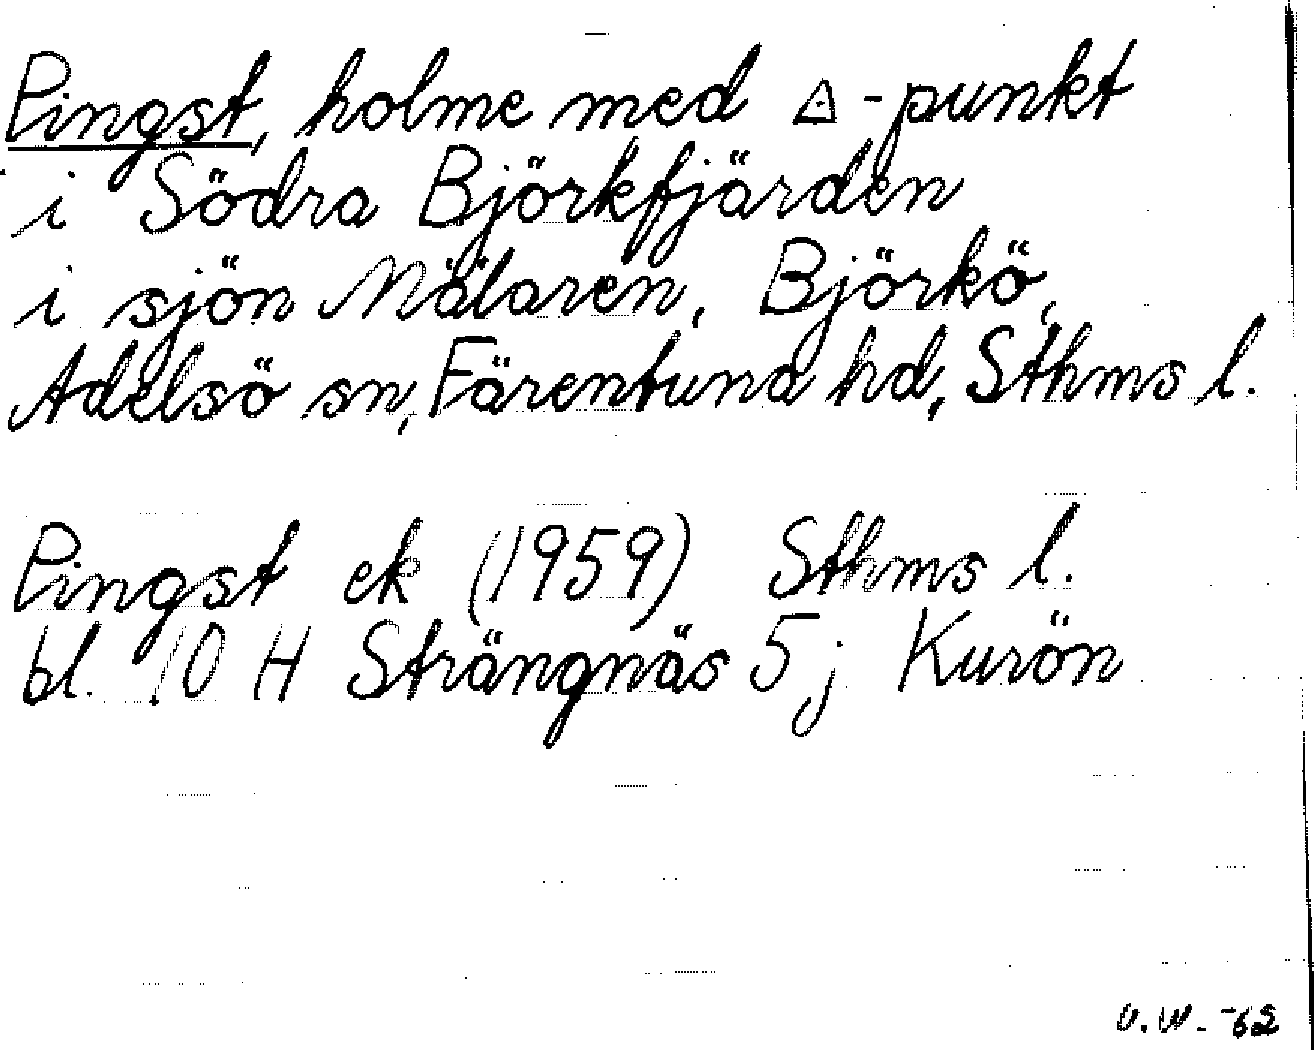 Pingst, holme med △-punkt
i Södra Björkfjärden
i sjön Mälaren, Björkö,
Adelsö sn, Färentuna hd, Sthms l.
Pingst ek (1959) Sthms l.
bl. 10 H Strängnäs 5 j Kurön
U.W. -62